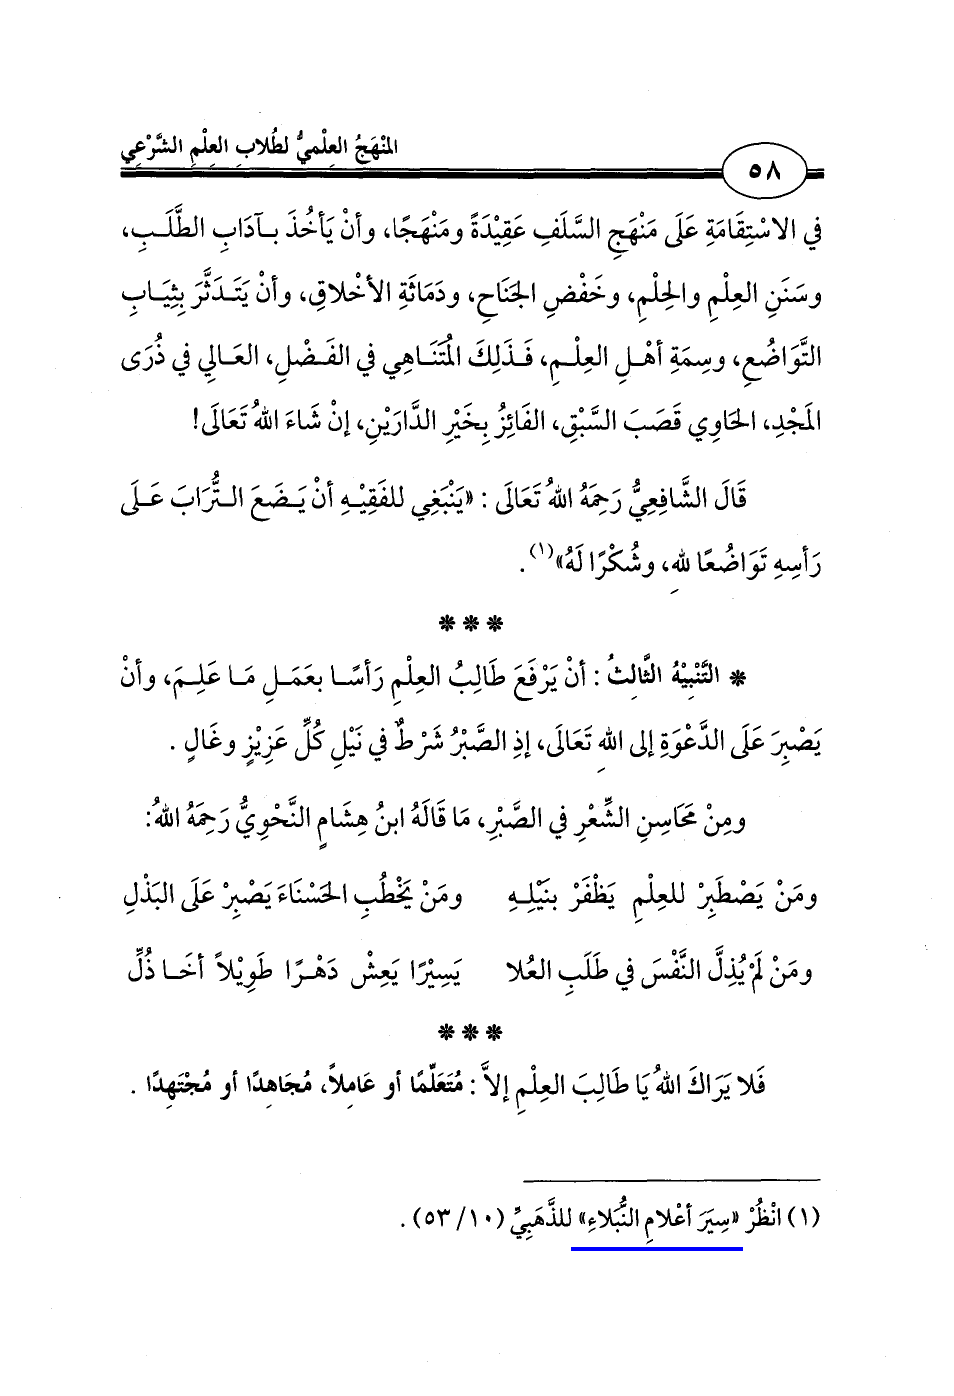 المنْهَجُ العِلْميُّ لطُلابِ العِلْمِ الشَّرْعِي
٥٨
في الاسْتِقَامَةِ عَلَى مَنْهَجِ السَّلَفِ عَقِيْدَةً ومَنْهَجًا، وأنْ يَأخُذَ بـآدَابِ الطَّلَبِ،
وسَنَنِ العِلْمِ والحِلْمِ، وخَفْضِ الجَنَاحِ، ودَمَاثَةِ الأخْلاقِ، وأنْ يَتَـدَثَّرَ بِثِيَـابِ
التَّوَاضُعِ، وسِمَةِ أهْـلِ العِلْـمِ، فَـذَلِكَ المُتَنَـاهِي في الفَـضْلِ، العَـالي في ذُرَى
المَجْدِ، الحَاوِي قَصَبَ السَّبْقِ، الفَائِزُ بِخَيْرِ الدَّارَيْنِ، إنْ شَاءَ اللهُ تَعَالَى!
قَالَ الشَّافِعِيُّ رَحِمَهُ اللهُ تَعَالَى : «يَنْبَغِي للفَقِيْـهِ أنْ يَـضَعَ الـتُّرَابَ عَـلَى
رَأسِهِ تَوَاضُعًا للهِ، وشُكْرًا لَهُ»(١).
* * *
* التَّنْبِيْهُ الثَّالِثُ : أنْ يَرْفَعَ طَالِبُ العِلْمِ رَأسًـا بعَمَـلِ مَـا عَلِـمَ، وأنْ
يَصْبِرَ عَلَى الدَّعْوَةِ إلى اللهِ تَعَالَى، إذِ الصَّبْرُ شَرْطٌ في نَيْلِ كُلِّ عَزِيْزٍ وغَالٍ .
ومِنْ مَحَاسِنِ الشِّعْرِ في الصَّبْرِ، مَا قَالَهُ ابنُ هِشَامٍ النَّحْوِيُّ رَحِمَهُ اللهُ:
ومَنْ يَصْطَبِرْ للعِلْمِ يَظْفَرْ بنَيْلِـهِ ومَنْ يَخْطُبِ الحَسْنَاءَ يَصْبِرْ عَلَى البَذْلِ
ومَنْ لَمْ يُذِلَّ النَّفْسَ في طَلَبِ العُلا يَسِيْرًا يَعِشْ دَهْـرًا طَوِيْلاً أخَـا ذُلِّ
* * *
فَلا يَرَاكَ اللهُ يَا طَالِبَ العِلْمِ إلاَّ : مُتَعَلِّمًا أو عَامِلاً، مُجَاهِدًا أو مُجْتَهِدًا .
(١) انْظُرْ «سِيَرَ أعْلامِ النُّبَلاءِ» للذَّهَبِيِّ (١٠/ ٥٣) .